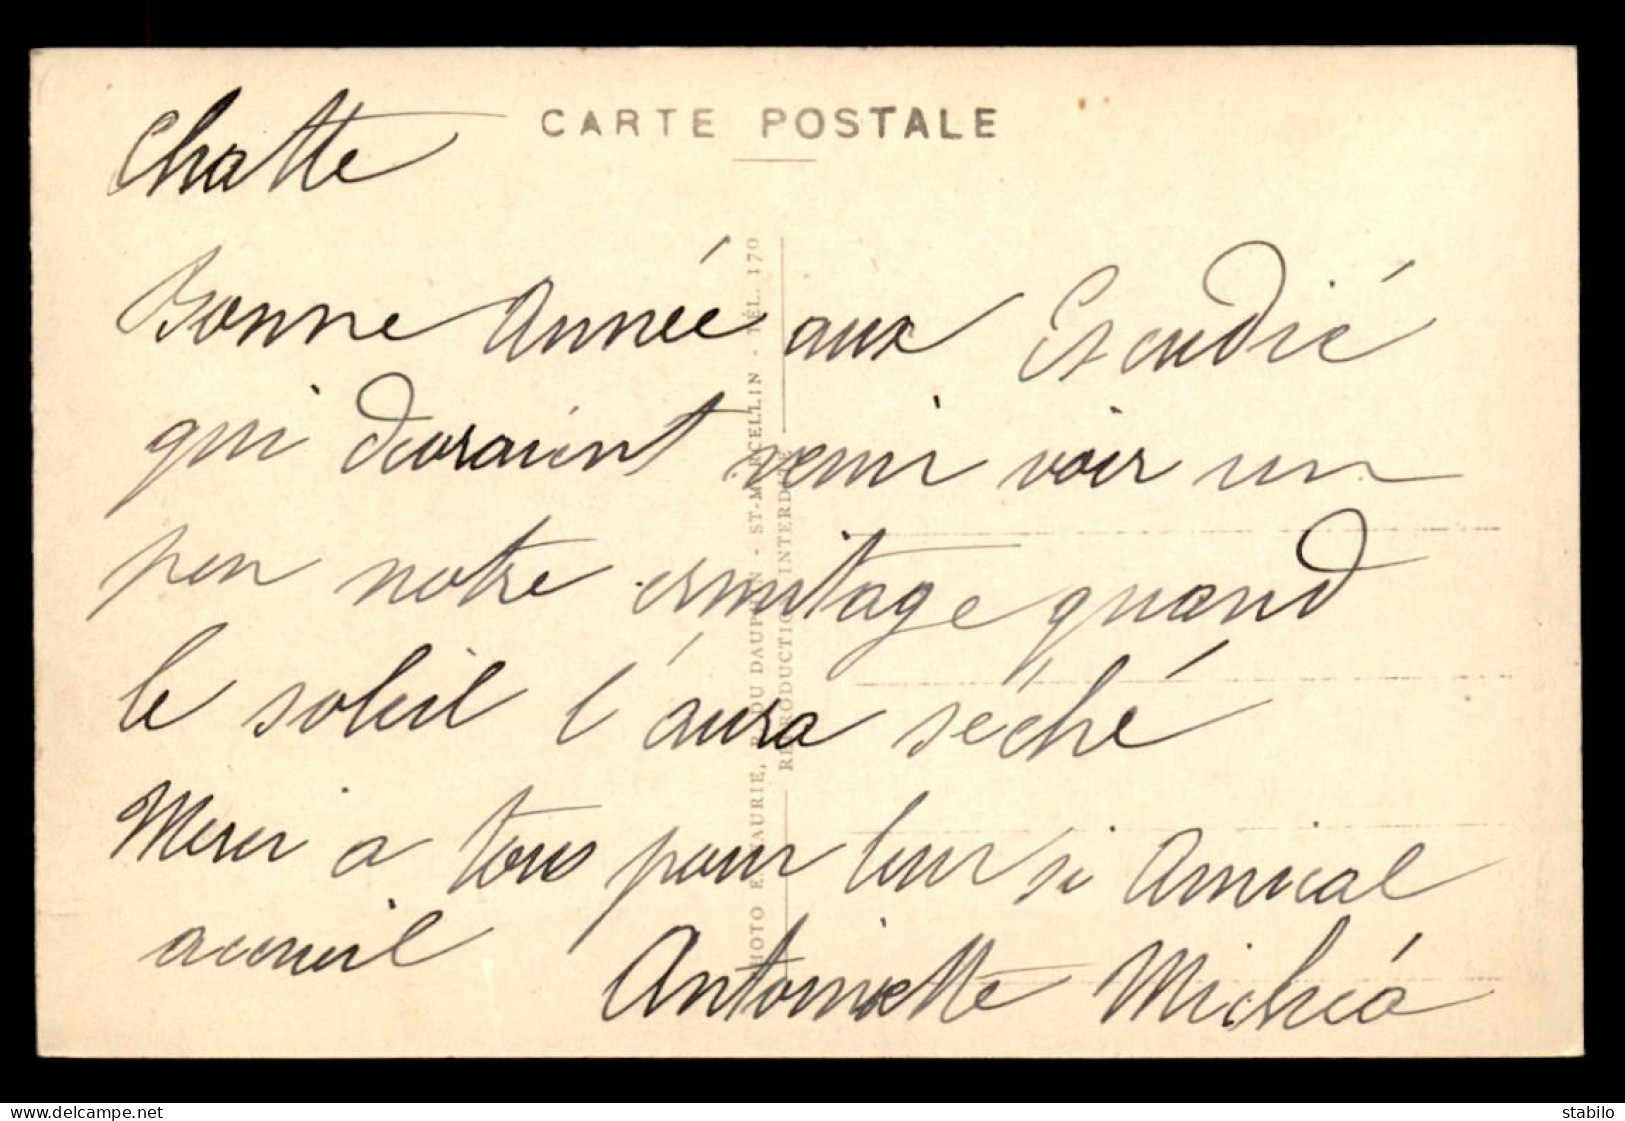 CARTE POSTALE
Chatte
Bonne Année aux Escudié
qui devraient venir voir un
peu notre ermitage quand
le soleil l'aura séché
Merci a tous pour leur si amical
accueil
Antoinette Michéa
PHOTO E. R. DU DAUPHIN - ST-MARCELLIN - TÉL. 170
REPRODUCTION INTERDITE
delcampe.net
stabilo